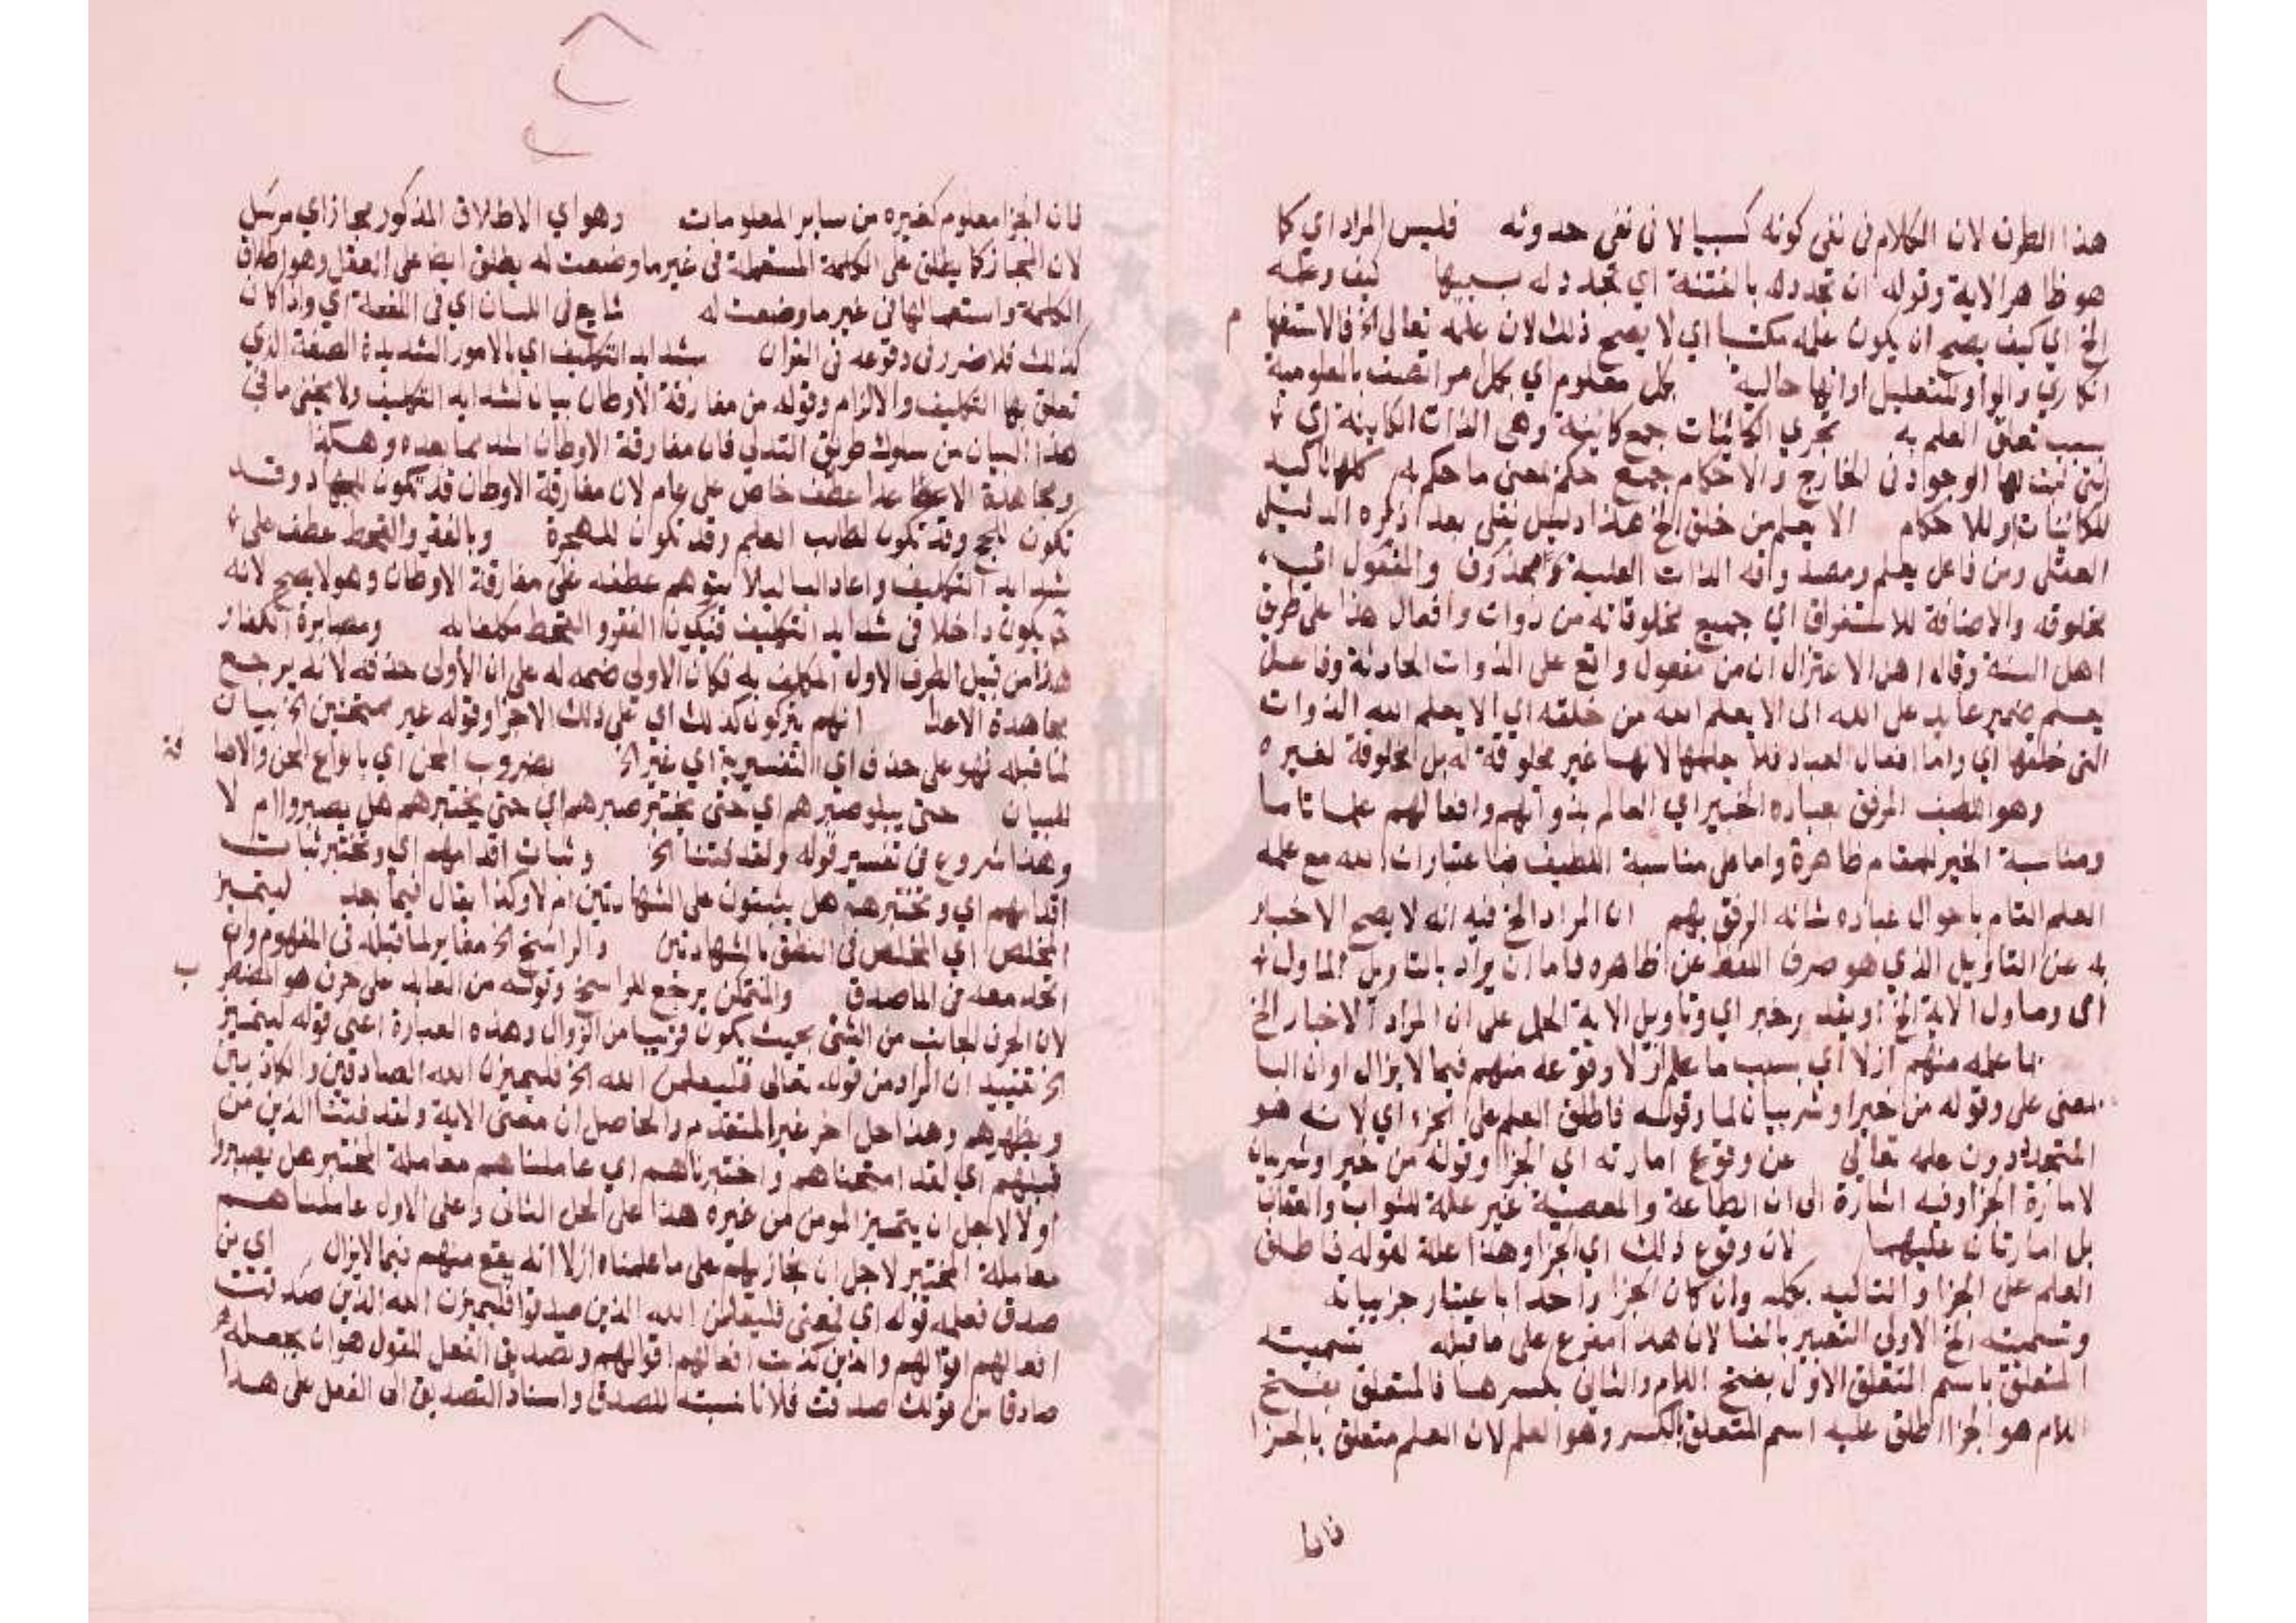 هذا الطرف لان الكلام في نفي كونه كسبيا لا في نفي حدوثه فليس المراد اي كا
هو ظاهر الاية وقوله ان تجدده بالفتنة اي تجدد له بسببها كيف وعلمه
الخ اي كيف يصح ان يكون علمه مكتسبا اي لا يصح ذلك لان علمه تعالى الخ فالاستفها م
انكاري والواو للتعليل او انها حالية بكل معلوم اي بكل امر اتصف بالمعلومية
بسبب تعلق العلم به تجري الكائنات جمع كاينة وهي الذات الكاينة اي
التي ثبت لها الوجود في الخارج والاحكام جميع حكم بمعنى ما حكم به كلها تاكيد
للكائنات او للاحكام الا يعلم من خلق الخ هذا دليل نقلي بعد ذكره الدليل
العقلي ومن فاعل يعلم ومصدوقه الذات العلية والمفعول اي
مخلوقه والاضافة للاستغراق اي جميع مخلوقاته من ذوات وافعال هذا على طريق
اهل السنة وقال اهل الاعتزال ان من مفعول واقع على الذوات الحادثة وفاعل
يعلم ضمير عايد على الله اي الا يعلم الله من خلقه اي الا يعلم الله الذوات
التي خلقها اي واما افعال العباد فلا لانها غير مخلوقة له بل مخلوقة لغيره
وهو اللطيف الرفق بعباده الخبير اي العالم بذواتهم وافعالهم علما تاما
ومناسبة الخبير للمقام ظاهرة واما مناسبة اللطيف فباعتبار ان الله مع علمه
العلم التام باحوال عباده شانه الرفق بهم ان المراد الخ فيه انه لا يصح الاخبار
به عن التاويل الذي هو صرف اللفظ عن ظاهره فاما ان يراد بالتاويل الماول
اي وماول الاية الخ او يقدر خبر اي وتاويل الاية الحمل على ان المراد الاخبار الخ
بما علمه منهم ازلا اي بسبب ما علم ازلا وقوعه منهم فيما لا يزال او ان البا
بمعنى على وقوله من خير او شر بيان لما وقوله فاطلق العلم على الجزاء اي لانه هو
المتجدد دون علمه تعالى عن وقوع امارته اي الجزا وقوله من خير او شر بيان
لامارة الجزا وفيه اشارة الى ان الطاعة والمعصية غير علة للثواب والعقاب
بل امارتان عليهما لان وقوع ذلك اي الجزا وهذا علة لقوله فاطلق
العلم على الجزا والتاكيد بكله وان كان الجزا واحدا باعتبار جزيياته
وتسميته الخ الاولى التعبير بالفا لان هذا مفرع على ما قبله تسمية
المتعلق باسم المتعلق الاول بفتح اللام والثاني بكسرها فالمتعلق بفتح
اللام هو الجزا اطلق عليه اسم المتعلق بالكسر وهو العلم لان العلم متعلق بالجزا
فان
فان الجزا معلوم كغيره من ساير المعلومات وهو اي الاطلاق المذكور مجاز اي مرسل
لان المجاز كما يطلق على الكلمة المستعملة في غير ما وضعت له يطلق ايضا على الفعل وهو اطلاق
الكلمة واستعمالها في غير ما وضعت له شايع في اللسان اي في اللغة اي واذا كان
كذلك فلا ضرر في وقوعه في القران شدايد التكليف اي بالامور الشديدة الصعبة الذي
تعلق بها التكليف والالزام وقوله من مفارقة الاوطان بيان لشدايد التكليف ولا يخفى ما في
هذا البيان من سلوك طريق التدلي فان مفارقة الاوطان اشد مما بعده وهكذا
ومجاهدة الاعدا عطف خاص على عام لان مفارقة الاوطان قد تكون للجهاد وقد
تكون للحج وقد تكون لطلب العلم وقد تكون للهجرة وبالفقر والقحط عطف على
شدايد التكليف واعاد البا ليلا يتوهم عطفه على مفارقة الاوطان وهو لا يصح لانه
ح يكون داخلا في شدايد التكليف فيكون الفقر والقحط مكلفا به ومصابرة الكفار
هذا من قبيل الطرف الاول المكلف به فكان الاولى ضمه له على ان الاولى حذفه لانه يرجع
مجاهدة الاعدا انهم يتركون كذلك اي على ذلك الاجزا وقوله غير ممتحنين الخ بيان
لما قبله فهو على حذف اي التفسيرية اي غير الخ بضروب المحن اي بانواع المحن والاضا فة
للبيان حتى يبلو صبرهم اي حتى يختبر صبرهم اي حتى يختبرهم هل يصبروا ام لا
وهذا شروع في تفسير قوله ولقد فتنا الخ وثبات اقدامهم اي ويختبر ثبات
اقدامهم اي ويختبرهم هل يثبتون على الشهادتين ام لا وكذا يقال فيما بعد ليتميز
المخلص اي المخلص في النطق بالشهادتين والراسخ الخ مغاير لما قبله في المفهوم وان
اتحد معه في الماصدق والمتمكن يرجع للراسخ وقوله من العابد على حرف هو المضطر ب
لان الحرف الجانب من الشي بحيث يكون قريبا من الزوال وهذه العبارة اعني قوله ليتميز
الخ تفيد ان المراد من قوله تعالى فليعلمن الله الخ فليميزن الله الصادقين والكاذبين
ويظهرهم وهذا حل اخر غير المتقدم والحاصل ان معنى الاية ولقد فتنا الذين من
قبلهم اي لقد امتحناهم واختبرناهم اي عاملناهم معاملة المختبر هل يصبروا
او لا لاجل ان يتميز المومن من غيره هذا على الحل الثاني وعلى الاول عاملناهم
معاملة المختبر لاجل ان نجازيهم على ما علمناه ازلا انه يقع منهم فيما لا يزال اي من
صدق فعله قوله اي لمعنى فليعلمن الله الذين صدقوا فليميزن الله الذين صدقت
افعالهم اقوالهم والذين كذبت افعالهم اقوالهم وتصديق الفعل للقول هو ان يجعله
صادقا من قولك صدقت فلانا نسبته للصدق واسناد التصديق الى الفعل على هذا